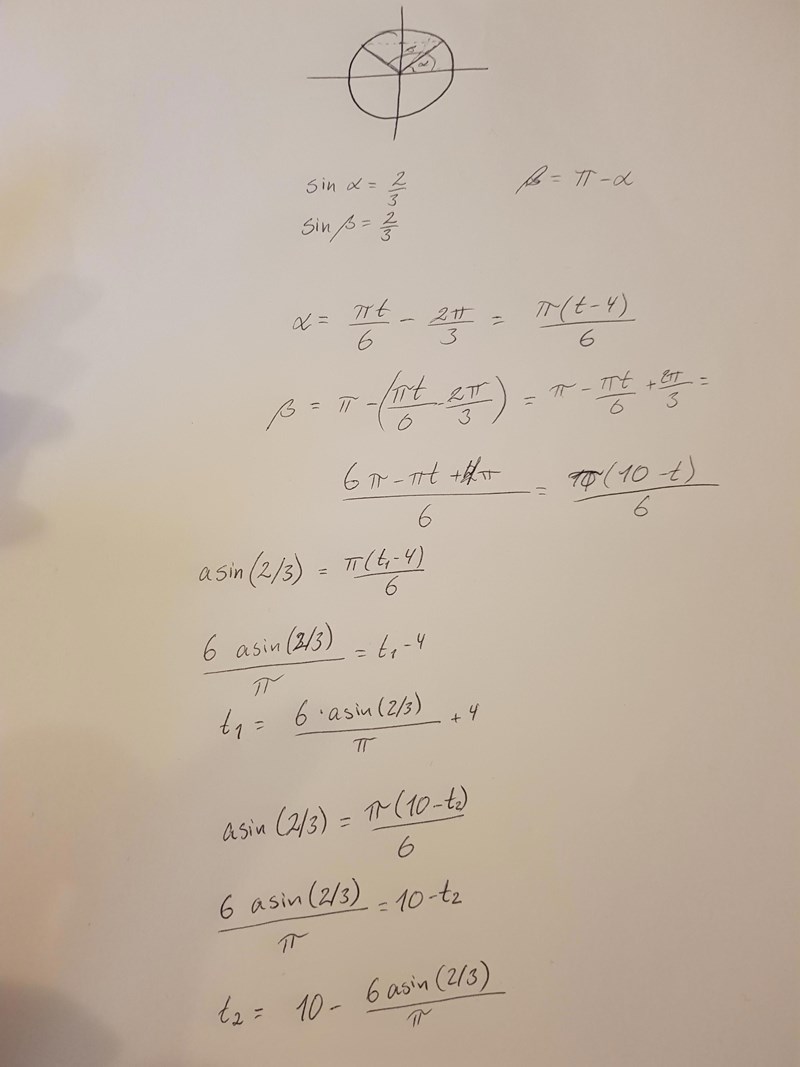 β α
sin α = 2/3 β = π - α
sin β = 2/3
α = πt/6 - 2π/3 = π(t-4)/6
β = π - (πt/6 - 2π/3) = π - πt/6 + 2π/3 =
6π - πt + 4π / 6 = π(10-t)/6
asin(2/3) = π(t₁-4)/6
6 asin(2/3)/π = t₁-4
t₁ = 6·asin(2/3)/π + 4
asin(2/3) = π(10-t₂)/6
6 asin(2/3)/π = 10-t₂
t₂ = 10 - 6asin(2/3)/π